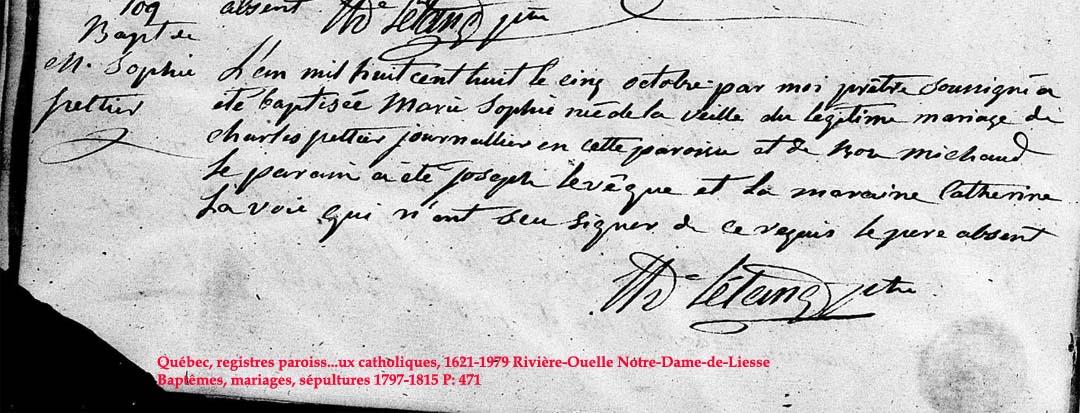 109
absent
Bapt de
M. Sophie
pettier
L'an mil huit cent huit le cinq octobre par moi prêtre soussigné a
eté baptisée Marie Sophie née de la veille du legitime mariage de
charles pettier journallier en cette paroisse et de Rou michaud
Le parain a été joseph levêque et La maraine Catherine
La voie qui n'ont seu signer de ce requis le pere absent
Létang ptre
Québec, registres paroiss...ux catholiques, 1621-1979 Rivière-Ouelle Notre-Dame-de-Liesse
Baptêmes, mariages, sépultures 1797-1815 P: 471